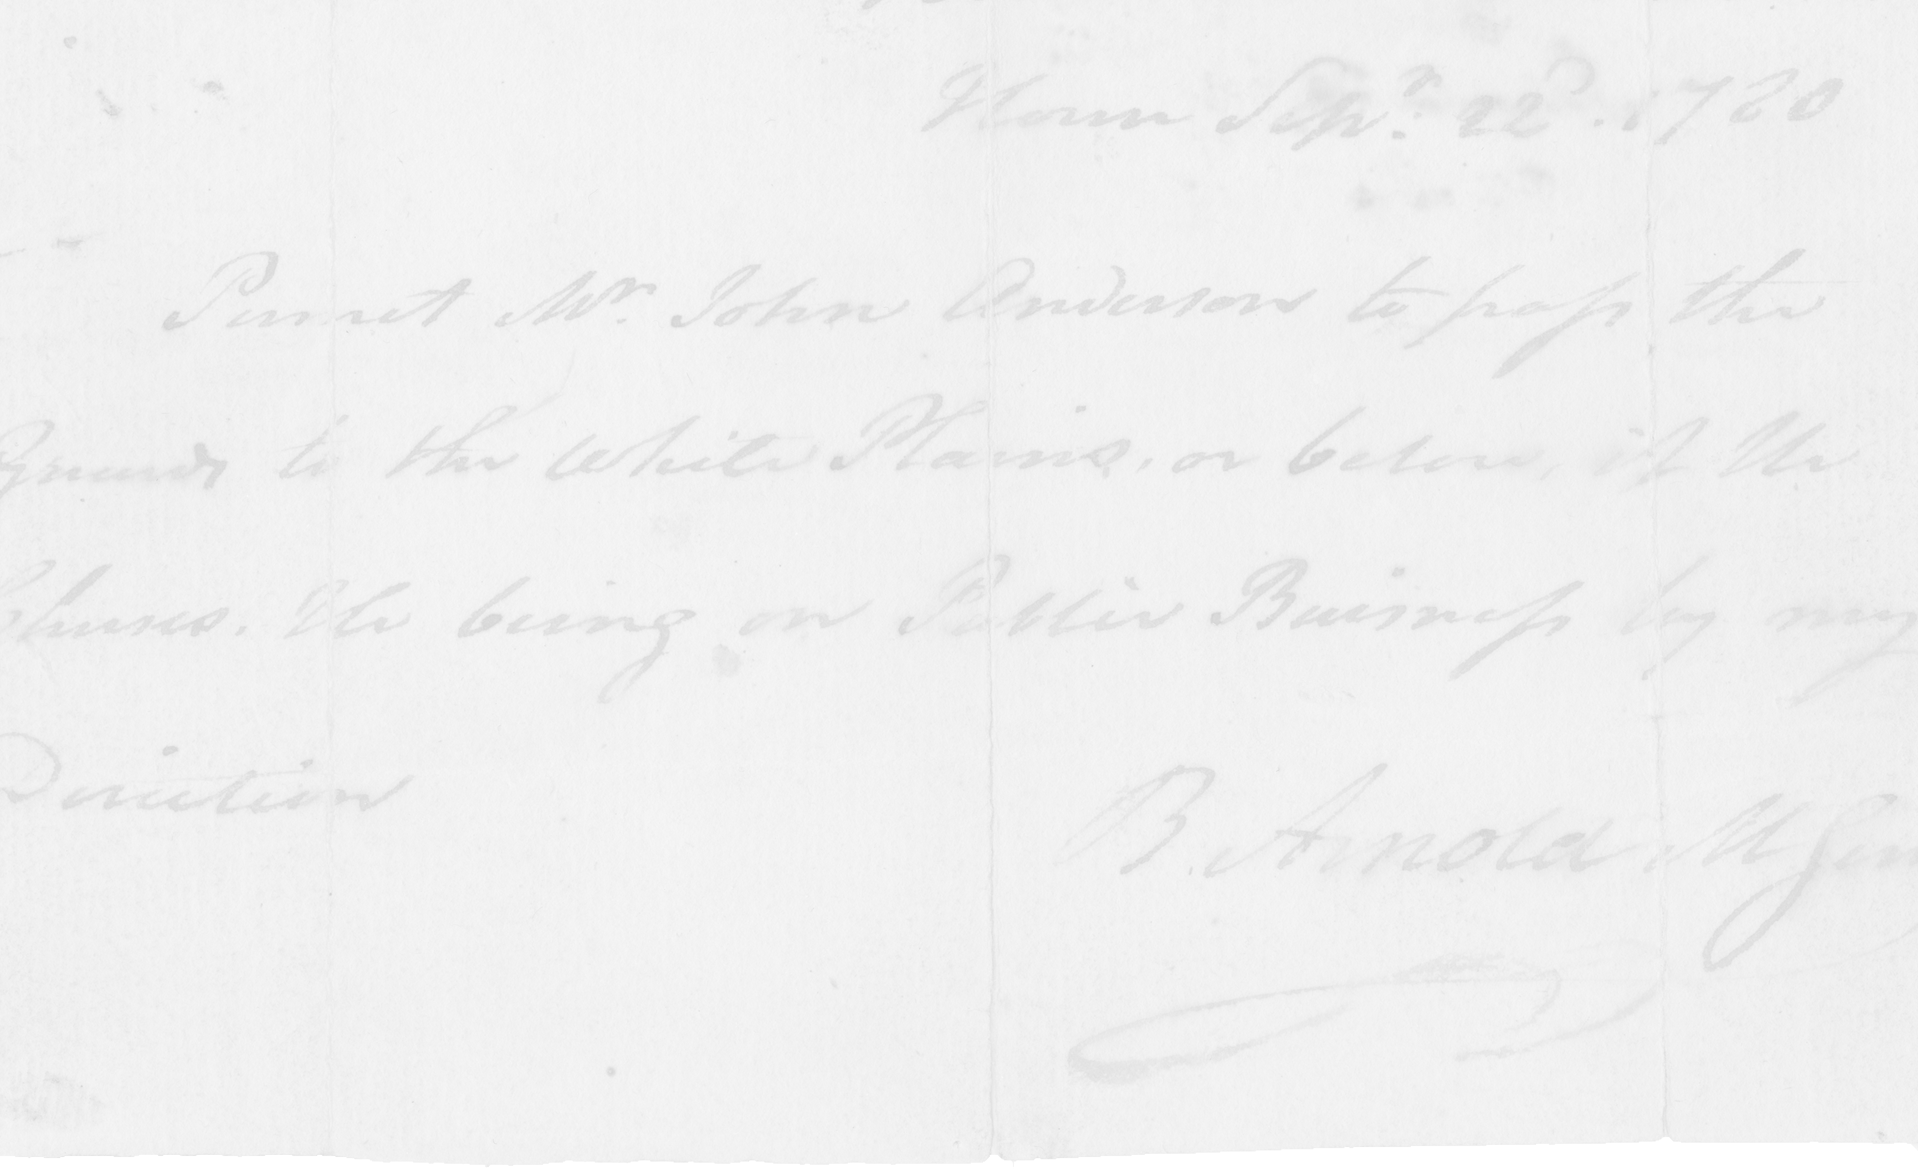 House Sepr. 22d. 1780
Permit Mr. John Anderson to pass the
Guards to the White Plains, or below, if He
Chuses. He being on Public Buisness by my
Direction
B. Arnold M Genl